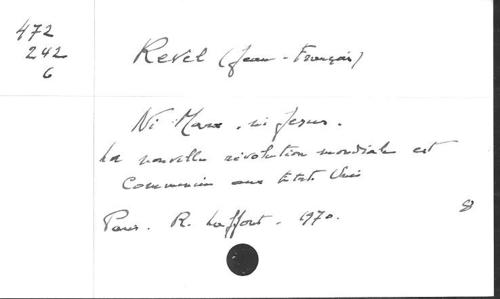 472
242
6
Revel (Jean-François)
Ni Marx, ni Jesus.
La nouvelle révolution mondiale est
commencée aux Etats Unis
Paris. R. Laffont. 1970.